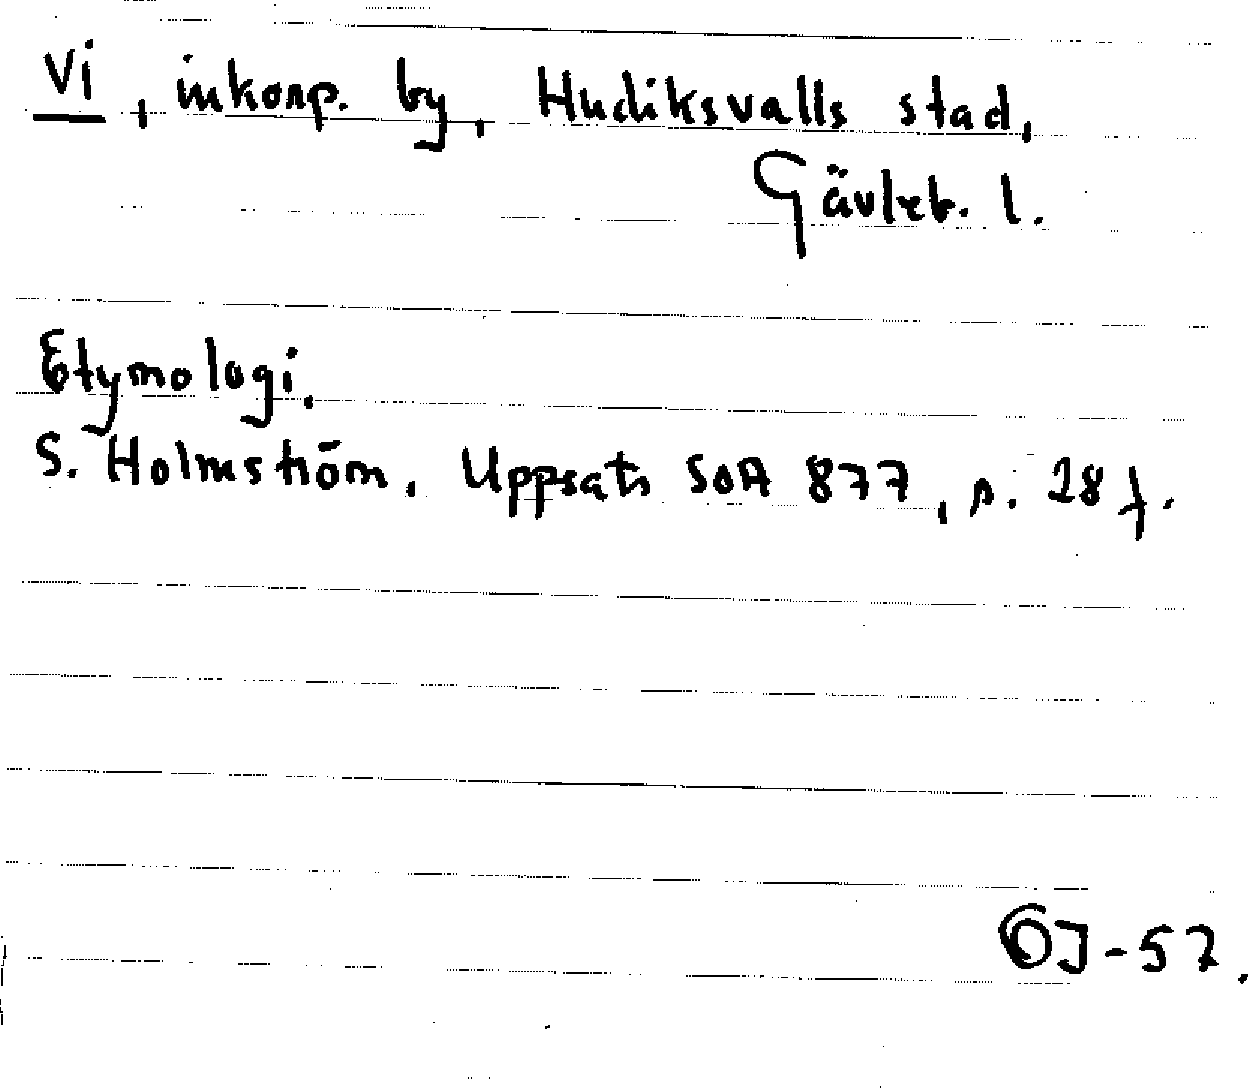 Vi, inkorp. by, Hudiksvalls stad,
Gävleb. l.
Etymologi.
S. Holmström, Uppsats SOA 877, s. 28 f.
OJ-52.